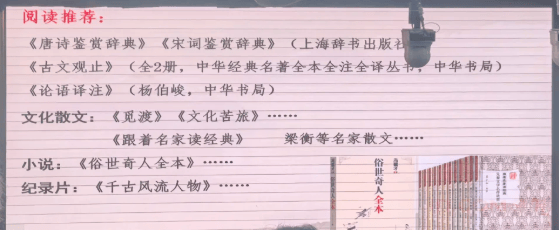 阅读推荐：
《唐诗鉴赏辞典》《宋词鉴赏辞典》（上海辞书出版社
《古文观止》（全2册，中华经典名著全本全注全译丛书，中华书局）
《论语译注》（杨伯峻，中华书局）
文化散文：《觅渡》《文化苦旅》……
《跟着名家读经典》 梁衡等名家散文……
小说：《俗世奇人全本》……
纪录片：《千古风流人物》……
俗世奇人全本